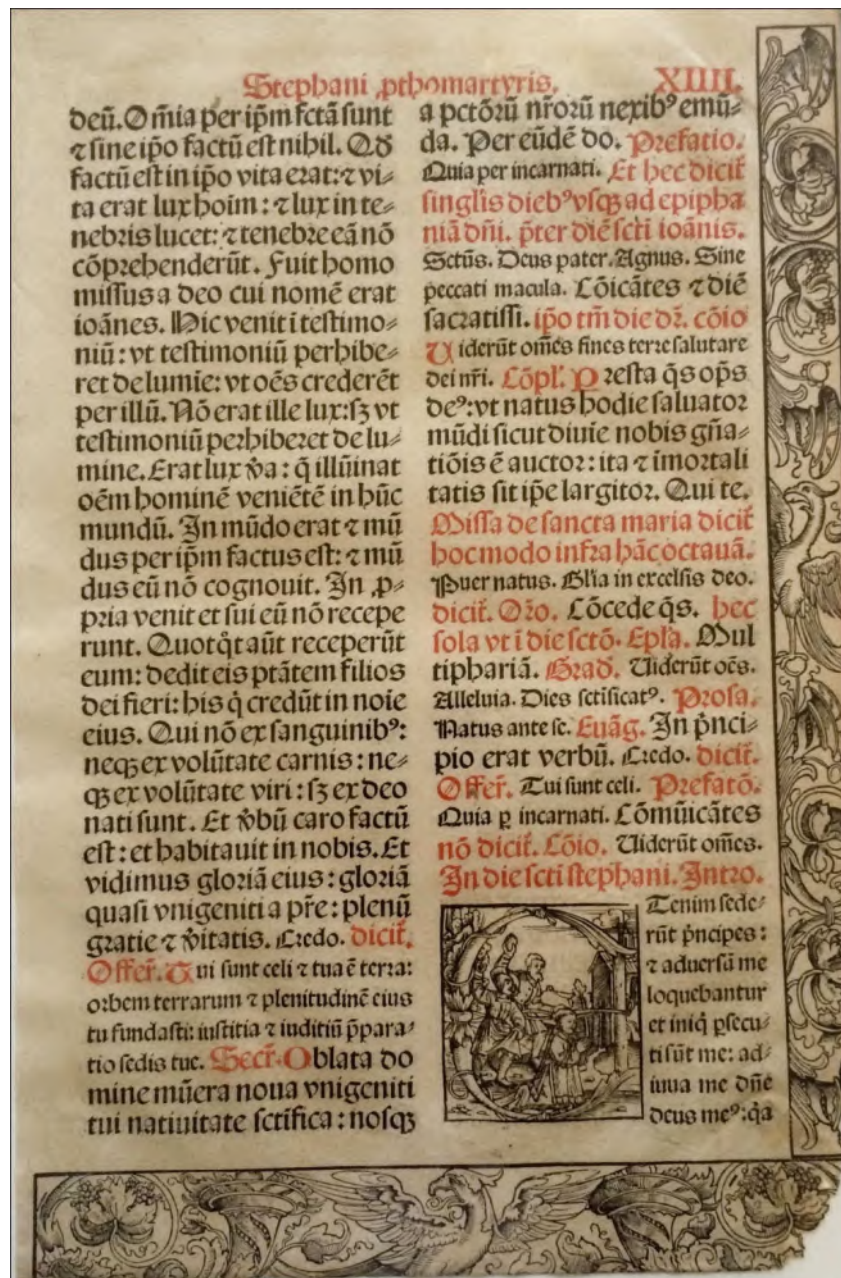 Stephani ꝓthomartyris. XIIII.
deũ. Om̃ia per ip̃m fctã ſunt
⁊ ſine ip̃o factũ eſt nihil. Qd̃
factũ eſt in ip̃o vita erat: ⁊ vi⸗
ta erat lux hoim̃: ⁊ lux in te⸗
nebris lucet: ⁊ tenebre eã nõ
cõprehenderũt. Fuit homo
miſſus a deo cui nomẽ erat
ioãnes. Hic venit ĩ teſtimo⸗
niũ: vt teſtimoniũ perhibe⸗
ret de lumĩe: vt oẽs crederẽt
per illũ. Nõ erat ille lux: ſꝫ vt
teſtimoniũ perhiberet de lu⸗
mine. Erat lux ꝟa: q̃ illũinat
oẽm hominẽ veniẽtẽ in hũc
mundũ. In mũdo erat ⁊ mũ
dus per ip̃m factus eſt: ⁊ mũ
dus eũ nõ cognouit. In ꝓ⸗
pria venit et ſui eũ nõ recepe
runt. Quotq̃t aũt receperũt
eum: dedit eis ptãtem filios
dei fieri: his q̃ credũt in noĩe
eius. Qui nõ ex ſanguinibꝰ:
neqꝫ ex volũtate carnis: ne⸗
qꝫ ex volũtate viri: ſꝫ ex deo
nati ſunt. Et ꝟbũ caro factũ
eſt: et habitauit in nobis. Et
vidimus gloriã eius: gloriã
quaſi vnigeniti a pr̃e: plenũ
gratie ⁊ ꝟitatis. Credo. dicit̃.
Offer̃. Tui ſunt celi ⁊ tua ẽ terra:
orbem terrarum ⁊ plenitudinẽ eius
tu fundaſti: iuſtitia ⁊ iuditiũ p̃para⸗
tio ſedis tue. Secr̃. Oblata do
mine mũera noua vnigeniti
tui natiuitate ſctĩfica: noſqꝫ
a pctõrũ nr̃orũ nexibꝰ emũ⸗
da. Per eũdẽ do. Prefatio.
Quia per incarnati. Et hec dicit̃
ſinglĩs diebꝰ vſqꝫ ad epipha
niã dñi. p̃ter diẽ ſctĩ ioãnis.
Sctũs. Deus pater. Agnus. Sine
peccati macula. Cõicãtes ⁊ diẽ
ſacratiſſi. ip̃o tm̃ die dr̃. cõio
Viderũt om̃es fines terre ſalutare
dei nr̃i. Cõpl̃. Preſta q̃s op̃s
deꝰ: vt natus hodie ſaluator
mũdi ſicut diuĩe nobis gña⸗
tiõis ẽ auctor: ita ⁊ ĩmortali
tatis ſit ip̃e largitor. Qui te.
Miſſa de ſancta maria dicit̃
hoc modo infra hãc octauã.
Puer natus. Gl̃ia in excelſis deo.
dicit̃. Or̃o. Cõcede q̃s. hec
ſola vt ĩ die ſctõ. Epl̃a. Mul
tiphariã. Grad̃. Viderũt oẽs.
Alleluia. Dies ſctĩficatꝰ. Proſa.
Natus ante ſe. Euãg. In p̃nci⸗
pio erat verbũ. Credo. dicit̃.
Offer̃. Tui ſunt celi. Prefatõ.
Quia ꝑ incarnati. Cõmũicãtes
nõ dicit̃. Cõio. Viderũt om̃es.
In die ſctĩ ſtephani. Intro.
Etenim ſede⸗
rũt p̃ncipes:
⁊ aduerſũ me
loquebantur
et iniq̃ ꝑſecu⸗
ti ſũt me: ad⸗
iuua me dñe
deus meꝰ: q̃a